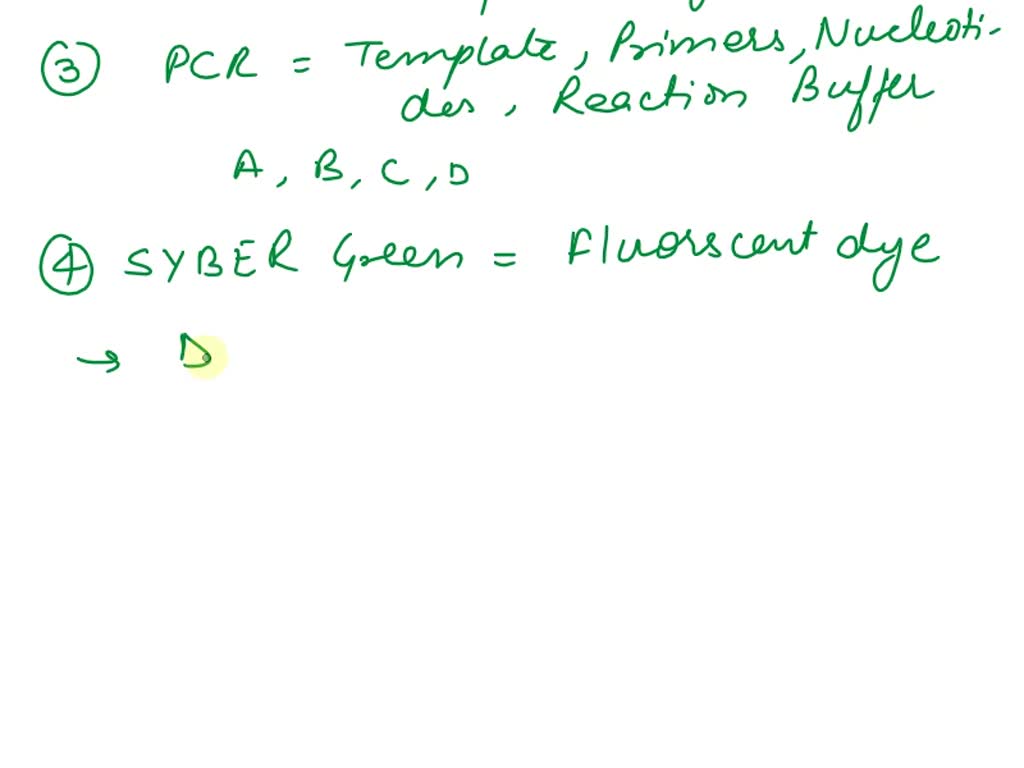 ③ PCR = Template, Primers, Nucleoti-
des, Reaction Buffer
A, B, C, D
④ SYBER Green = Fluorscent dye
→ D